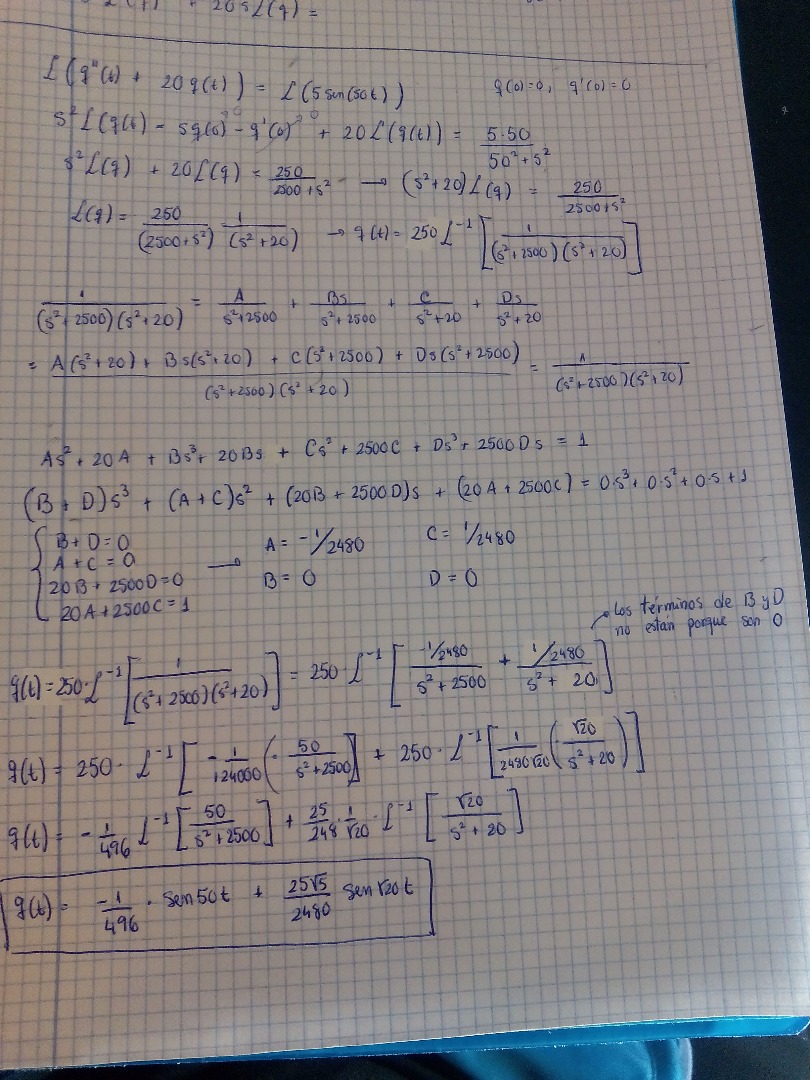 + 20 s ℒ(q) =
ℒ(q''(t) + 20q(t)) = ℒ(5 sen(50t)) q(0)=0, q'(0)=0
s²ℒ(q(t) - sq(0)⁰ - q'(0)⁰ + 20ℒ(q(t)) = 5·50/(50²+s²)
s²ℒ(q) + 20ℒ(q) = 250/(2500+s²) → (s²+20)ℒ(q) = 250/(2500+s²)
ℒ(q) = 250/(2500+s²) 1/(s²+20) → q(t) = 250ℒ⁻¹[1/((s²+2500)(s²+20))]
1/((s²+2500)(s²+20)) = A/(s²+2500) + Bs/(s²+2500) + C/(s²+20) + Ds/(s²+20)
= (A(s²+20) + Bs(s²+20) + C(s²+2500) + Ds(s²+2500))/((s²+2500)(s²+20)) = 1/((s²+2500)(s²+20))
As² + 20A + Bs³ + 20Bs + Cs² + 2500C + Ds³ + 2500Ds = 1
(B+D)s³ + (A+C)s² + (20B+2500D)s + (20A+2500C) = 0·s³ + 0·s² + 0·s + 1
B+D=0 A = -1/2480 C = 1/2480
A+C=0 →
20B+2500D=0 B=0 D=0
20A+2500C=1
Los términos de B y D
no están porque son 0
q(t) = 250·ℒ⁻¹[1/((s²+2500)(s²+20))] = 250·ℒ⁻¹[(-1/2480)/(s²+2500) + (1/2480)/(s²+20)]
q(t) = 250·ℒ⁻¹[-1/124000(50/(s²+2500)] + 250·ℒ⁻¹[1/(2480√20)(√20/(s²+20))]
q(t) = -1/496 ℒ⁻¹[50/(s²+2500)] + 25/248·1/√20·ℒ⁻¹[√20/(s²+20)]
q(t) = -1/496 · sen50t + 25√5/2480 sen√20t